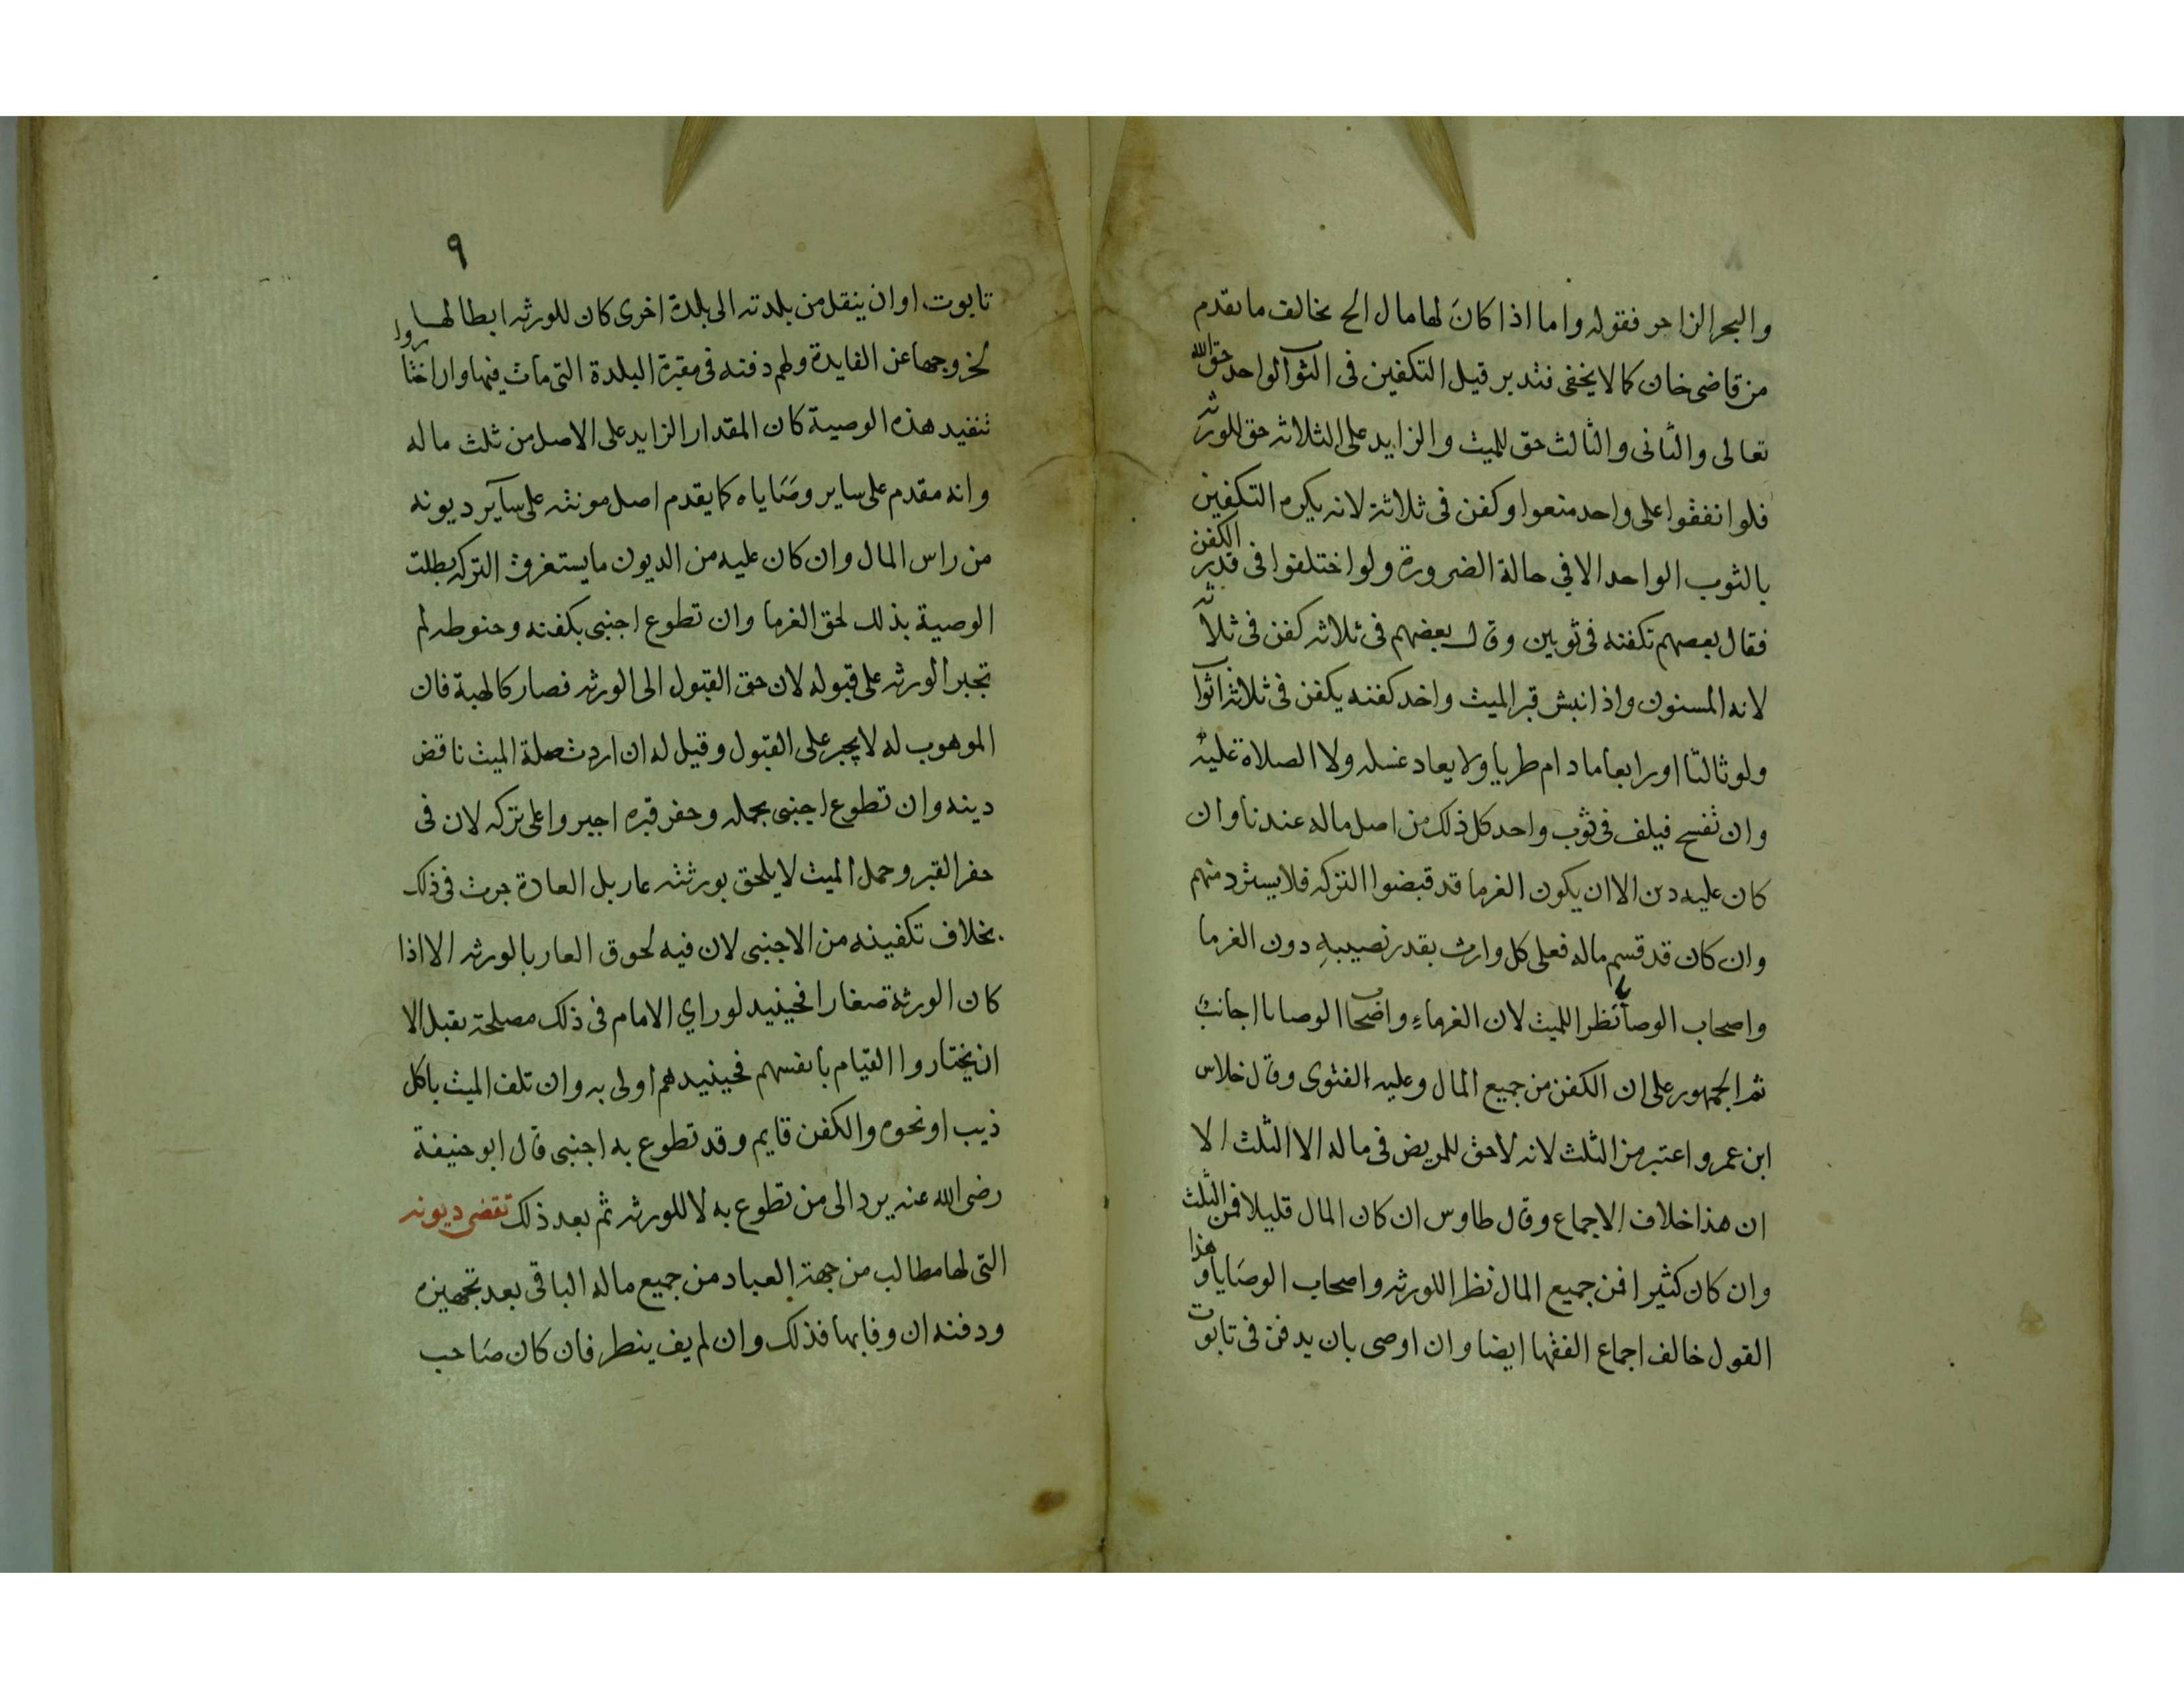 والبحر الزاخر فقوله واما اذا كانَ لها مال الخ يخالف ما تقدم
من قاضى خان كما لا يخفى فتدبر قيل التكفين فى الثوب الواحد حق الله
تعالى والثانى والثالث حق للميت والزايد على الثلاثه حق للورثه
فلو انفقوا على واحد منعوا وكفن فى ثلاثة لانه يكره التكفين
بالثوب الواحد الا في حالة الضرورة ولو اختلفوا فى قدر الكفن
فقال بعضهم تكفنه فى ثوبين وقال بعضهم فى ثلاثه كفن فى ثلاثه
لانه المسنون واذا نبش قبر الميت واخد كفنه يكفن فى ثلاثه اثواب
ولو ثالثا او رابعا ما دام طريا ولا يعاد غسله ولا الصلاة عليه
وان تفسح فيلف فى ثوب واحد كل ذلك من اصل ماله عندنا وان
كان عليه دين الا ان يكون الغرما قد قبضوا التركه فلا يسترد منهم
وان كان قد قسم ماله فعلى كل وارث بقدر نصيبهِ دون الغرما
واصحاب الوصايا نظرا للميت لان الغرماء واصحاب الوصايا اجانب
ثم الجمهور على ان الكفن من جميع المال وعليه الفتوى وقال خلاس
ابن عمرو اعتبر من الثلث لانه لا حق للمريض فى ماله الا الثلث الا
ان هذا خلاف الاجماع وقال طاوس ان كان المال قليلا فمن الثلث
وان كان كثيرا فمن جميع المال نظرا للورثه واصحاب الوصَايا وهذا
القول خالف اجماع الفقها ايضا وان اوصى بان يدفن فى تابوت
٩
تابوت او ان ينقل من بلدته الى بلدة اخرى كان للورثه ابطالها
لخروجها عن الفايدة ولهم دفنه فى مقبرة البلدة التى مات فيها وان اختاروا
تنفيد هذه الوصية كان المقدار الزايد على الاصل من ثلث ماله
وانه مقدم على ساير وصَاياه كما يقدم اصل مونته على سآير ديونه
من راس المال وان كان عليه من الديون ما يستغرق التركه بطلت
الوصية بذلك لحق الغرما وان تطوع اجنبى بكفنه وحنوطه لم
تجبر الورثه على قبوله لان حق القبول الى الورثه فصار كالهبة فان
الموهوب له لا يجبر على القبول وقيل له ان اردت صلة الميت فاقض
دينه وان تطوع اجنبى بحمله وحفر قبره اجبروا على تركه لان فى
حفر القبر وحمل الميت لا يلحق بورثته عار بل العادة جرت فى ذلك
بخلاف تكفينه من الاجنبى لان فيه لحوق العار بالورثه الا اذا
كان الورثة صغارا فحينيد لو راي الامام فى ذلك مصلحة يقبل الا
ان يختاروا القيام بانفسهم فحينيد هم اولى به وان تلف الميت باكل
ذيب او نحوه والكفن قايم وقد تطوع به اجنبى قال ابو حنيفة
رضى الله عنه يرد الى من تطوع به لا للورثه ثم بعد ذلك تقضى ديونه
التى لها مطالب من جهة العباد من جميع ماله الباقى بعد تجهيزه
ودفنه ان وفا بها فذلك وان لم يف ينطر فان كان صَاحب